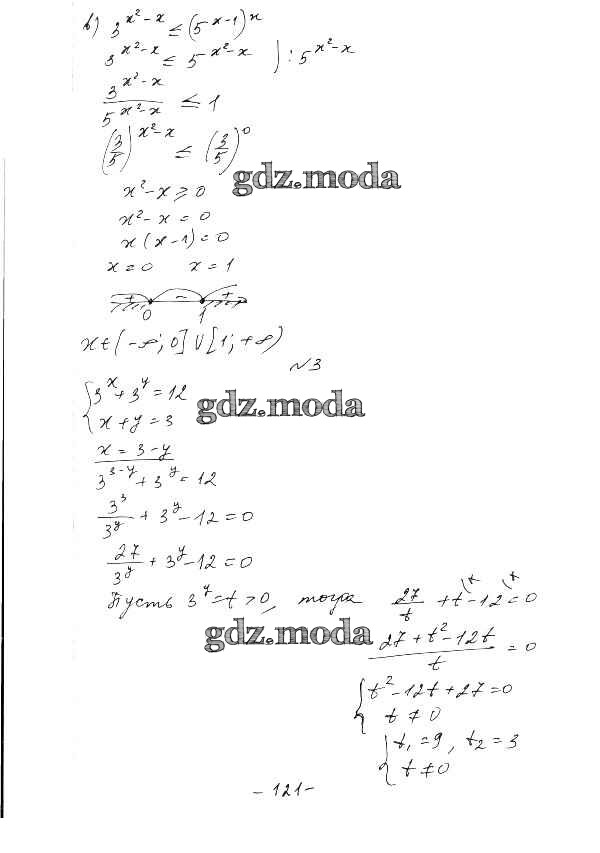 в) 3^{x²-x} ≤ (5^{x-1})^x
3^{x²-x} ≤ 5^{x²-x} ) : 5^{x²-x}
3^{x²-x}/5^{x²-x} ≤ 1
(3/5)^{x²-x} ≤ (3/5)^0
gdz.moda
x²-x ≥ 0
x²-x = 0
x(x-1) = 0
x=0 x=1
+ - +
0 1
x∈(-∞; 0]∪[1; +∞)
№3
{3^x+3^y=12
{x+y=3
gdz.moda
x=3-y
3^{3-y}+3^y=12
3³/3^y + 3^y-12=0
27/3^y + 3^y-12=0
Пусть 3^y=t>0, тогда 27/t + t^{(t} - 12^{(t} = 0
gdz.moda
(27+t²-12t)/t = 0
{t²-12t+27=0
{t≠0
{t₁=9, t₂=3
{t≠0
-121-